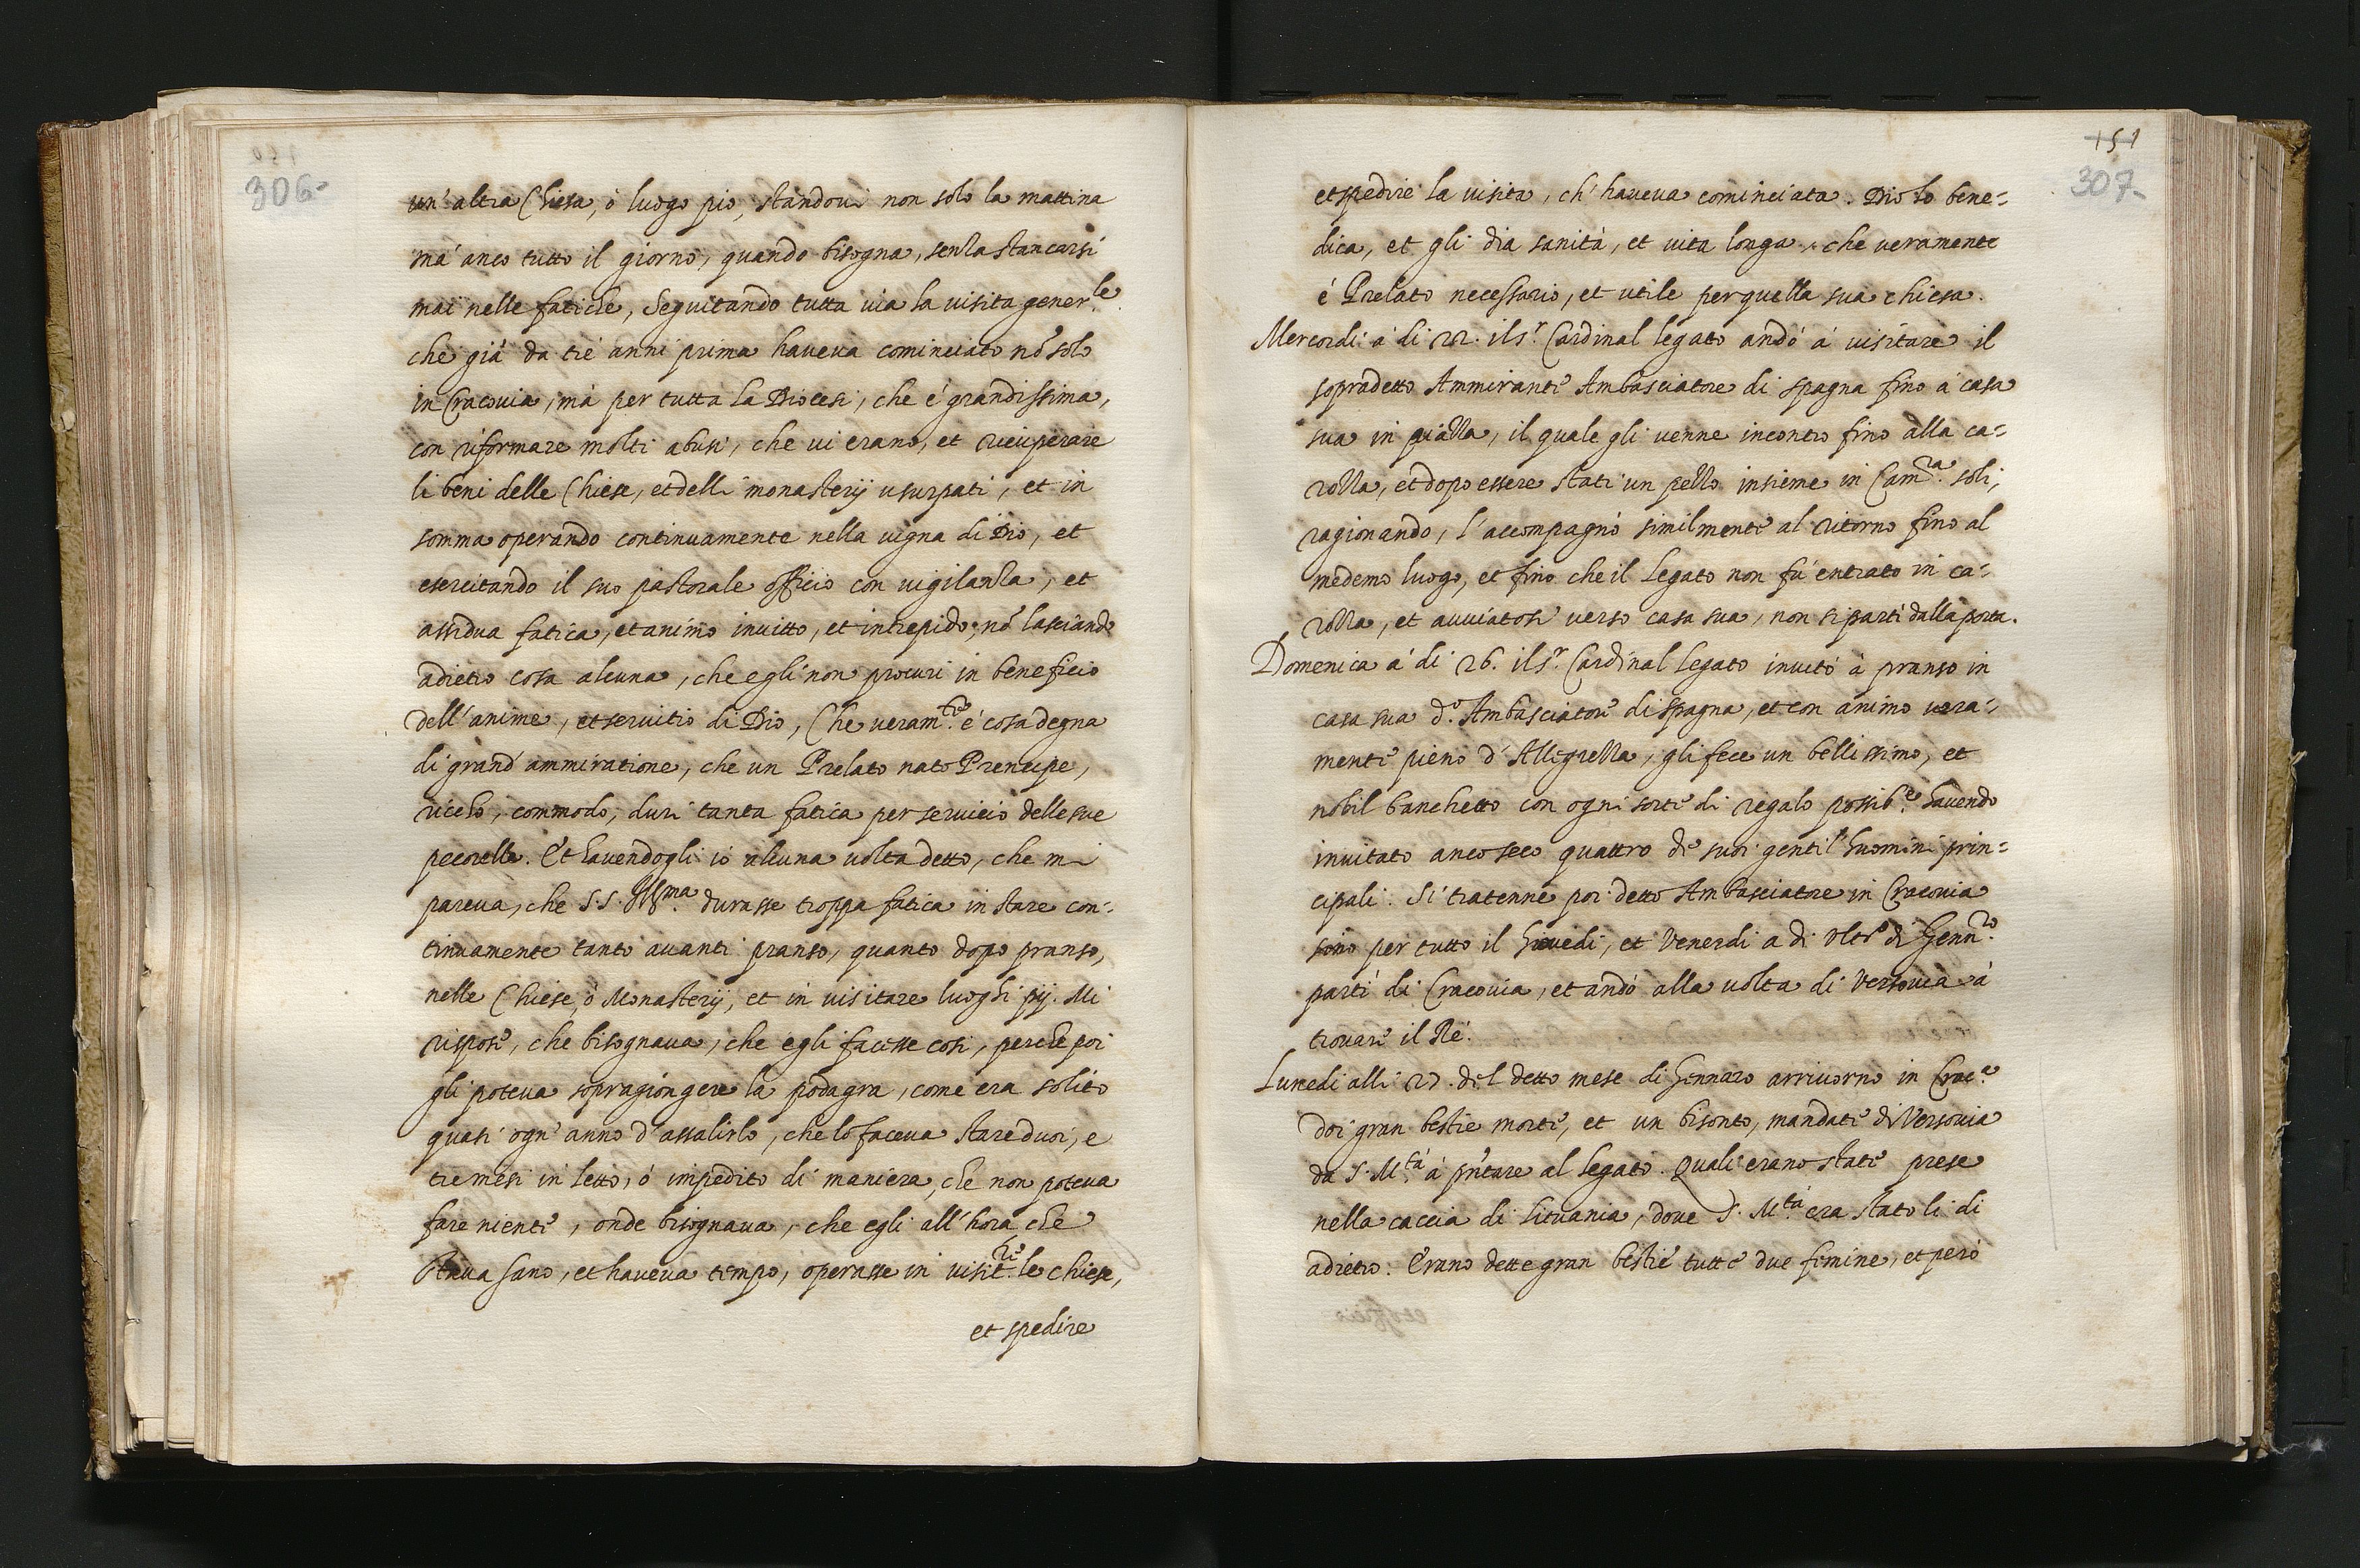 306
un' altra Chiesa, ó luogo pio, standoui non solo la mattina
má anco tutto il giorno, quando bisogna, senza stancarsi
mai nelle fatiche, Seguitando tutta uia la uisita gener.le
che giá da tré anni prima haueua cominciato nõ solo
in Cracouia, má per tutta la Diocesi, che é grandissima,
con riformare molti abusi, che ui erano, et ricuperare
li beni delle Chiese, et delli monasterij usurpati, et in
somma operando continuamente nella uigna di Dio, et
esercitando il suo pastorale officio con uigilanza, et
assidua fatica, et animo inuitto, et intrepido, nõ lasciando
adietro cosa alcuna, che egli non procuri in beneficio
dell' anime, et seruitio di Dio, Che veram.te é cosa degna
di grand' ammiratione, che un Prelato nato Prencipe,
riccho, commodo, duri tanta fatica per seruicio delle sue
pecorelle. Et hauendogli io alcuna uolta detto, che mi
pareua, che S.S. Ill.ma durasse troppa fatica in stare con-
tinuamente tanto auanti pranso, quanto dopo pranso,
nelle Chiese, ó Monasterij, et in uisitare luoghi pij. Mi
rispose, che bisognaua, che egli facesse cosi, perche poi
gli poteua sopragiongere la podagra, come era solito
quasi ogn' anno d' assalirlo, che lo faceua stare duoi, e
tre mesi in letto, ó impedito di maniera, che non poteua
fare niente, onde bisognaua, che egli all' hora che
staua sano, et haueua tempo, operasse in visit.re le chiese,
et spedire
151
307
et spedire la uisita, ch' haueua cominciata. Dio lo bene=
dica, et gli dia sanitá, et uita longa, che ueramente
é Prelato necessario, et utile per quella sua chiesa.
Mercordi á di 22. il s.r Cardinal legato andó á uisitare il
sopradetto Ammirante Ambasciatore di Spagna fino á casa
sua in piazza, il quale gli uenne incontro fino alla ca=
rozza, et dopo essere stati un pezzo insieme in Cam.ra soli,
ragionando, l' accompagnó similmente al ritorno fino al
medemo luogo, et fino che il Legato non fú entrato in ca=
rozza, et auuiatosi uerso casa sua, non si parti dalla porta.
Domenica á di 26. il s.r Cardinal legato inuitó á pranso in
casa sua d.o Ambasciatore di Spagna, et con animo uera=
mente pieno d' Allegrezza, gli fece un bellissimo, et
nobil banchetto con ogni sorte di regalo possib.e hauendo
inuitato anco seco quattro de suoi gentil' huomini prin=
cipali. Si tratenne poi detto Ambasciatore in Cracouia
sino per tutto il Giouedi, et Venerdi a di Vlt.o di Genn.ro
parti di Cracouia, et andó alla uolta di Versouia á
trouare il Ré.
Lunedi alli 27. del detto mese di Gennaro arriuorno in Crac.a
doi gran bestie morte, et un bisonto, mandate di Versouia
da S. M.tá á pñtare al legato. Quali erano state prese
nella caccia di Lituania, doue S. M.tá era stato li di
adietro. Erano dette gran bestie tutte due femine, et peró